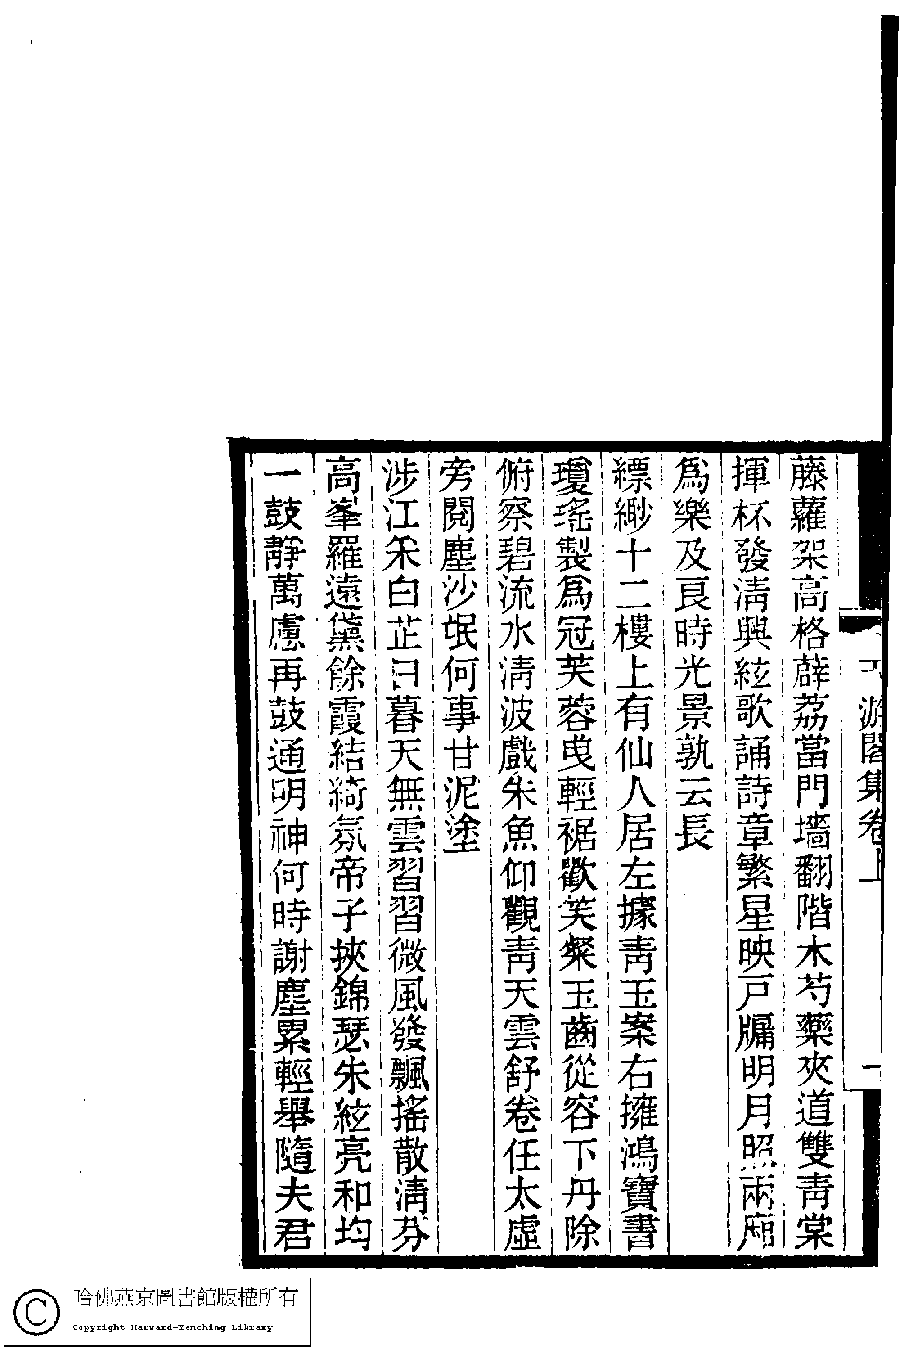 游閣集卷上
一
藤蘿架高格薜荔當門墻翻階木芍藥夾道雙靑棠
揮杯發淸興絃歌誦詩章繁星映戸牖明月照兩廂
爲樂及良時光景孰云長
縹緲十二樓上有仙人居左據靑玉案右擁鴻寶書
瓊瑤製爲冠芙蓉曳輕裾歡笑粲玉齒從容下丹除
俯察碧流水淸波戲朱魚仰觀靑天雲舒卷任太虛
旁閱塵沙氓何事甘泥塗
涉江采白芷日暮天無雲習習微風發飄搖散淸芬
高峯羅遠黛餘霞結綺氛帝子挾錦瑟朱絃亮和均
一鼓靜萬慮再鼓通明神何時謝塵累輕舉隨夫君
哈佛燕京圖書館版權所有
Copyright Harvard-Yenching Library